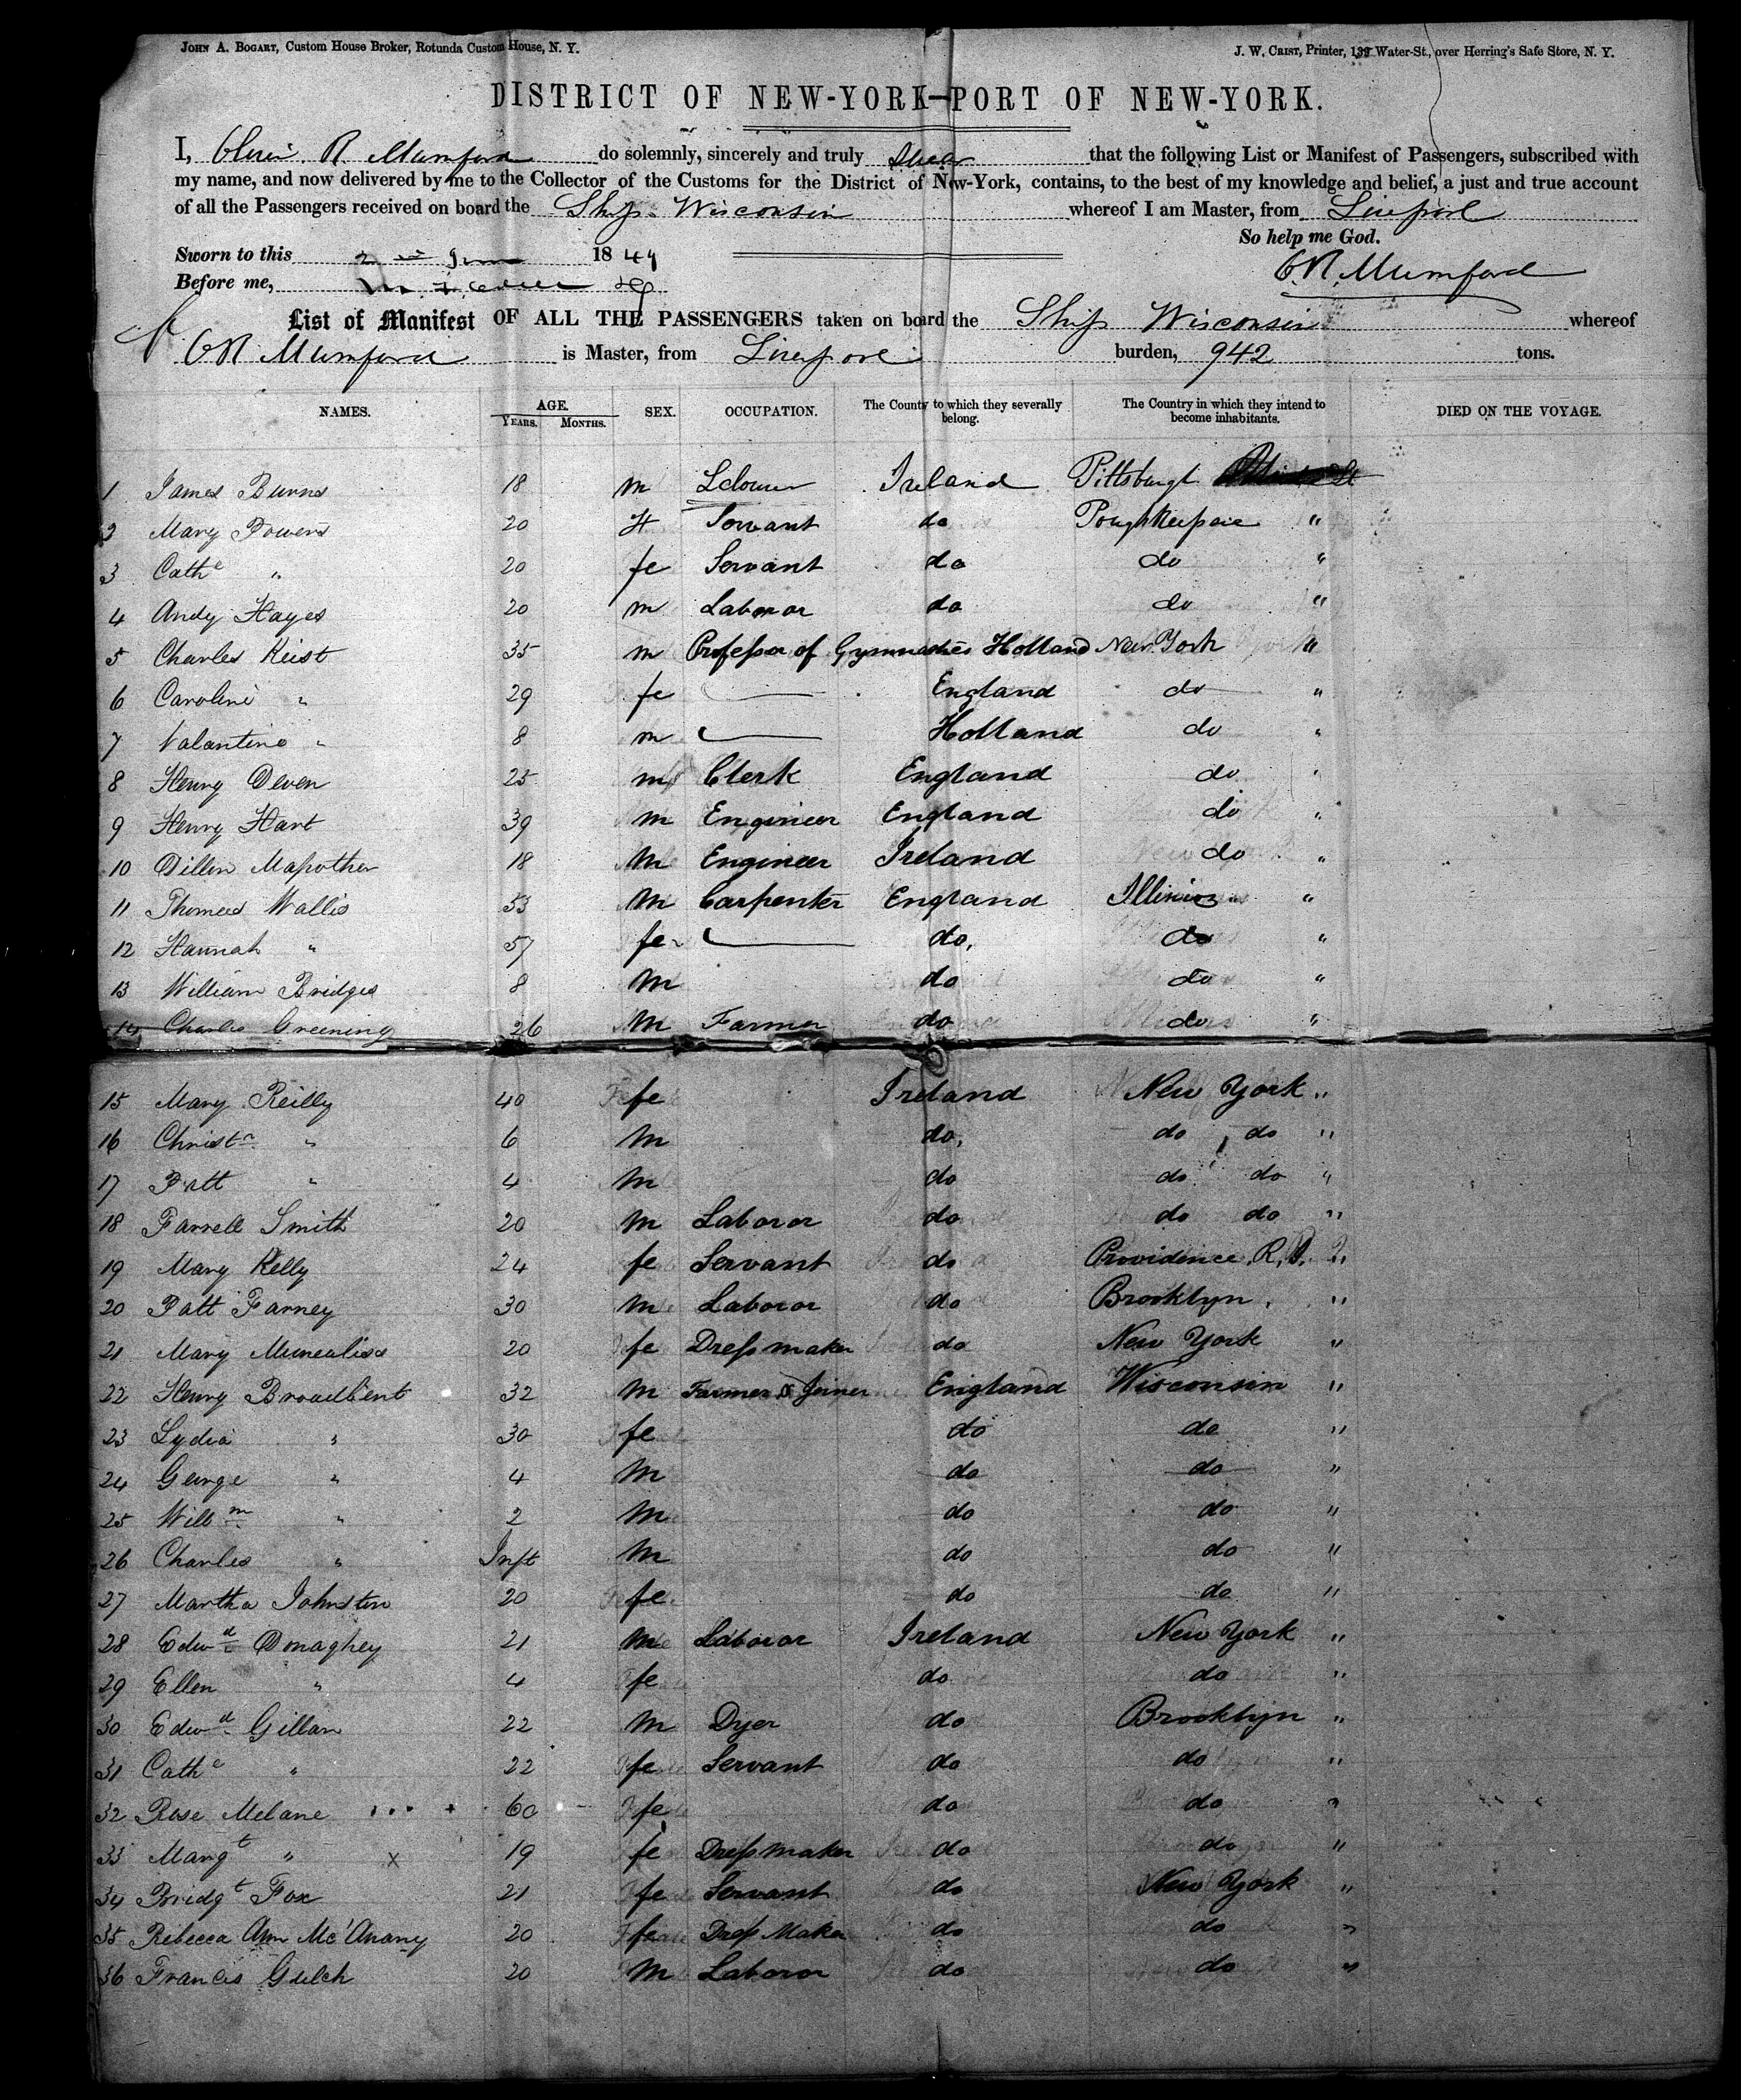 JOHN A. BOGART, Custom House Broker, Rotunda Custom House, N. Y. J. W. CRIST, Printer, 139 Water-St., over Herring's Safe Store, N. Y.
DISTRICT OF NEW-YORK—PORT OF NEW-YORK.
I, R. Mumford do solemnly, sincerely and truly swear that the following List or Manifest of Passengers, subscribed with
my name, and now delivered by me to the Collector of the Customs for the District of New-York, contains, to the best of my knowledge and belief, a just and true account
of all the Passengers received on board the Ship Wisconsin whereof I am Master, from Liverpool
So help me God.
Sworn to this 2nd June 1849
Before me,
O R Mumford
List of Manifest OF ALL THE PASSENGERS taken on board the Ship Wisconsin whereof
O R Mumford is Master, from Liverpool burden, 942 tons.
NAMES. AGE. YEARS. MONTHS. SEX. OCCUPATION. The County to which they severally belong. The Country in which they intend to become inhabitants. DIED ON THE VOYAGE.
1 James Burns 18 m Ireland Pittsburgt
2 Mary Powers 20 Servant do Poughkeepsie "
3 Cathe " 20 fe Servant do do "
4 Andy Hayes 20 m Laboror do do "
5 Charles Keist 35 m Professor of Gymnastics Holland New York "
6 Caroline " 29 fe — England do "
7 Valantine " 8 m — Holland do "
8 Henry Deven 25 m Clerk England do "
9 Henry Hart 39 m Engineer England do "
10 Dillon Mapother 18 m Engineer Ireland do "
11 Thomas Wallis 53 m Carpenter England Illinios "
12 Hannah " 57 fe — do. do "
13 William Bridges 8 m do do "
14 Charles Greening 26 m Farmer do do "
15 Mary Reilly 40 fe Ireland New York "
16 Christr " 6 m do. do do "
17 Patt " 4 m do do do "
18 Farrell Smith 20 m Laboror do do do "
19 Mary Kelly 24 fe Servant do Providence. R. I. "
20 Patt Farney 30 m Laboror do Brooklyn. "
21 Mary 20 fe Dress maker do New York "
22 Henry Broadbent 32 m Farmer & Joiner England Wisconsin "
23 Lydia " 30 fe do do "
24 George " 4 m do do "
25 Willm " 2 m do do "
26 Charles " Inft m do do "
27 Martha Johnston 20 fe do do "
28 Edwd Donaghey 21 m Laboror Ireland New York "
29 Ellen " 4 fe do do "
30 Edwd Gillan 22 m Dyer do Brooklyn "
31 Cathe " 22 fe Servant do do "
32 Rose Melane 60 fe do do "
33 Margt " x 19 fe Dress maker do do "
34 Bridgt Fox 21 fe Servant do New York "
35 Rebecca Ann Mc'Anany 20 fe Dress Maker do do "
36 Francis Gulch 20 m Laboror do do "